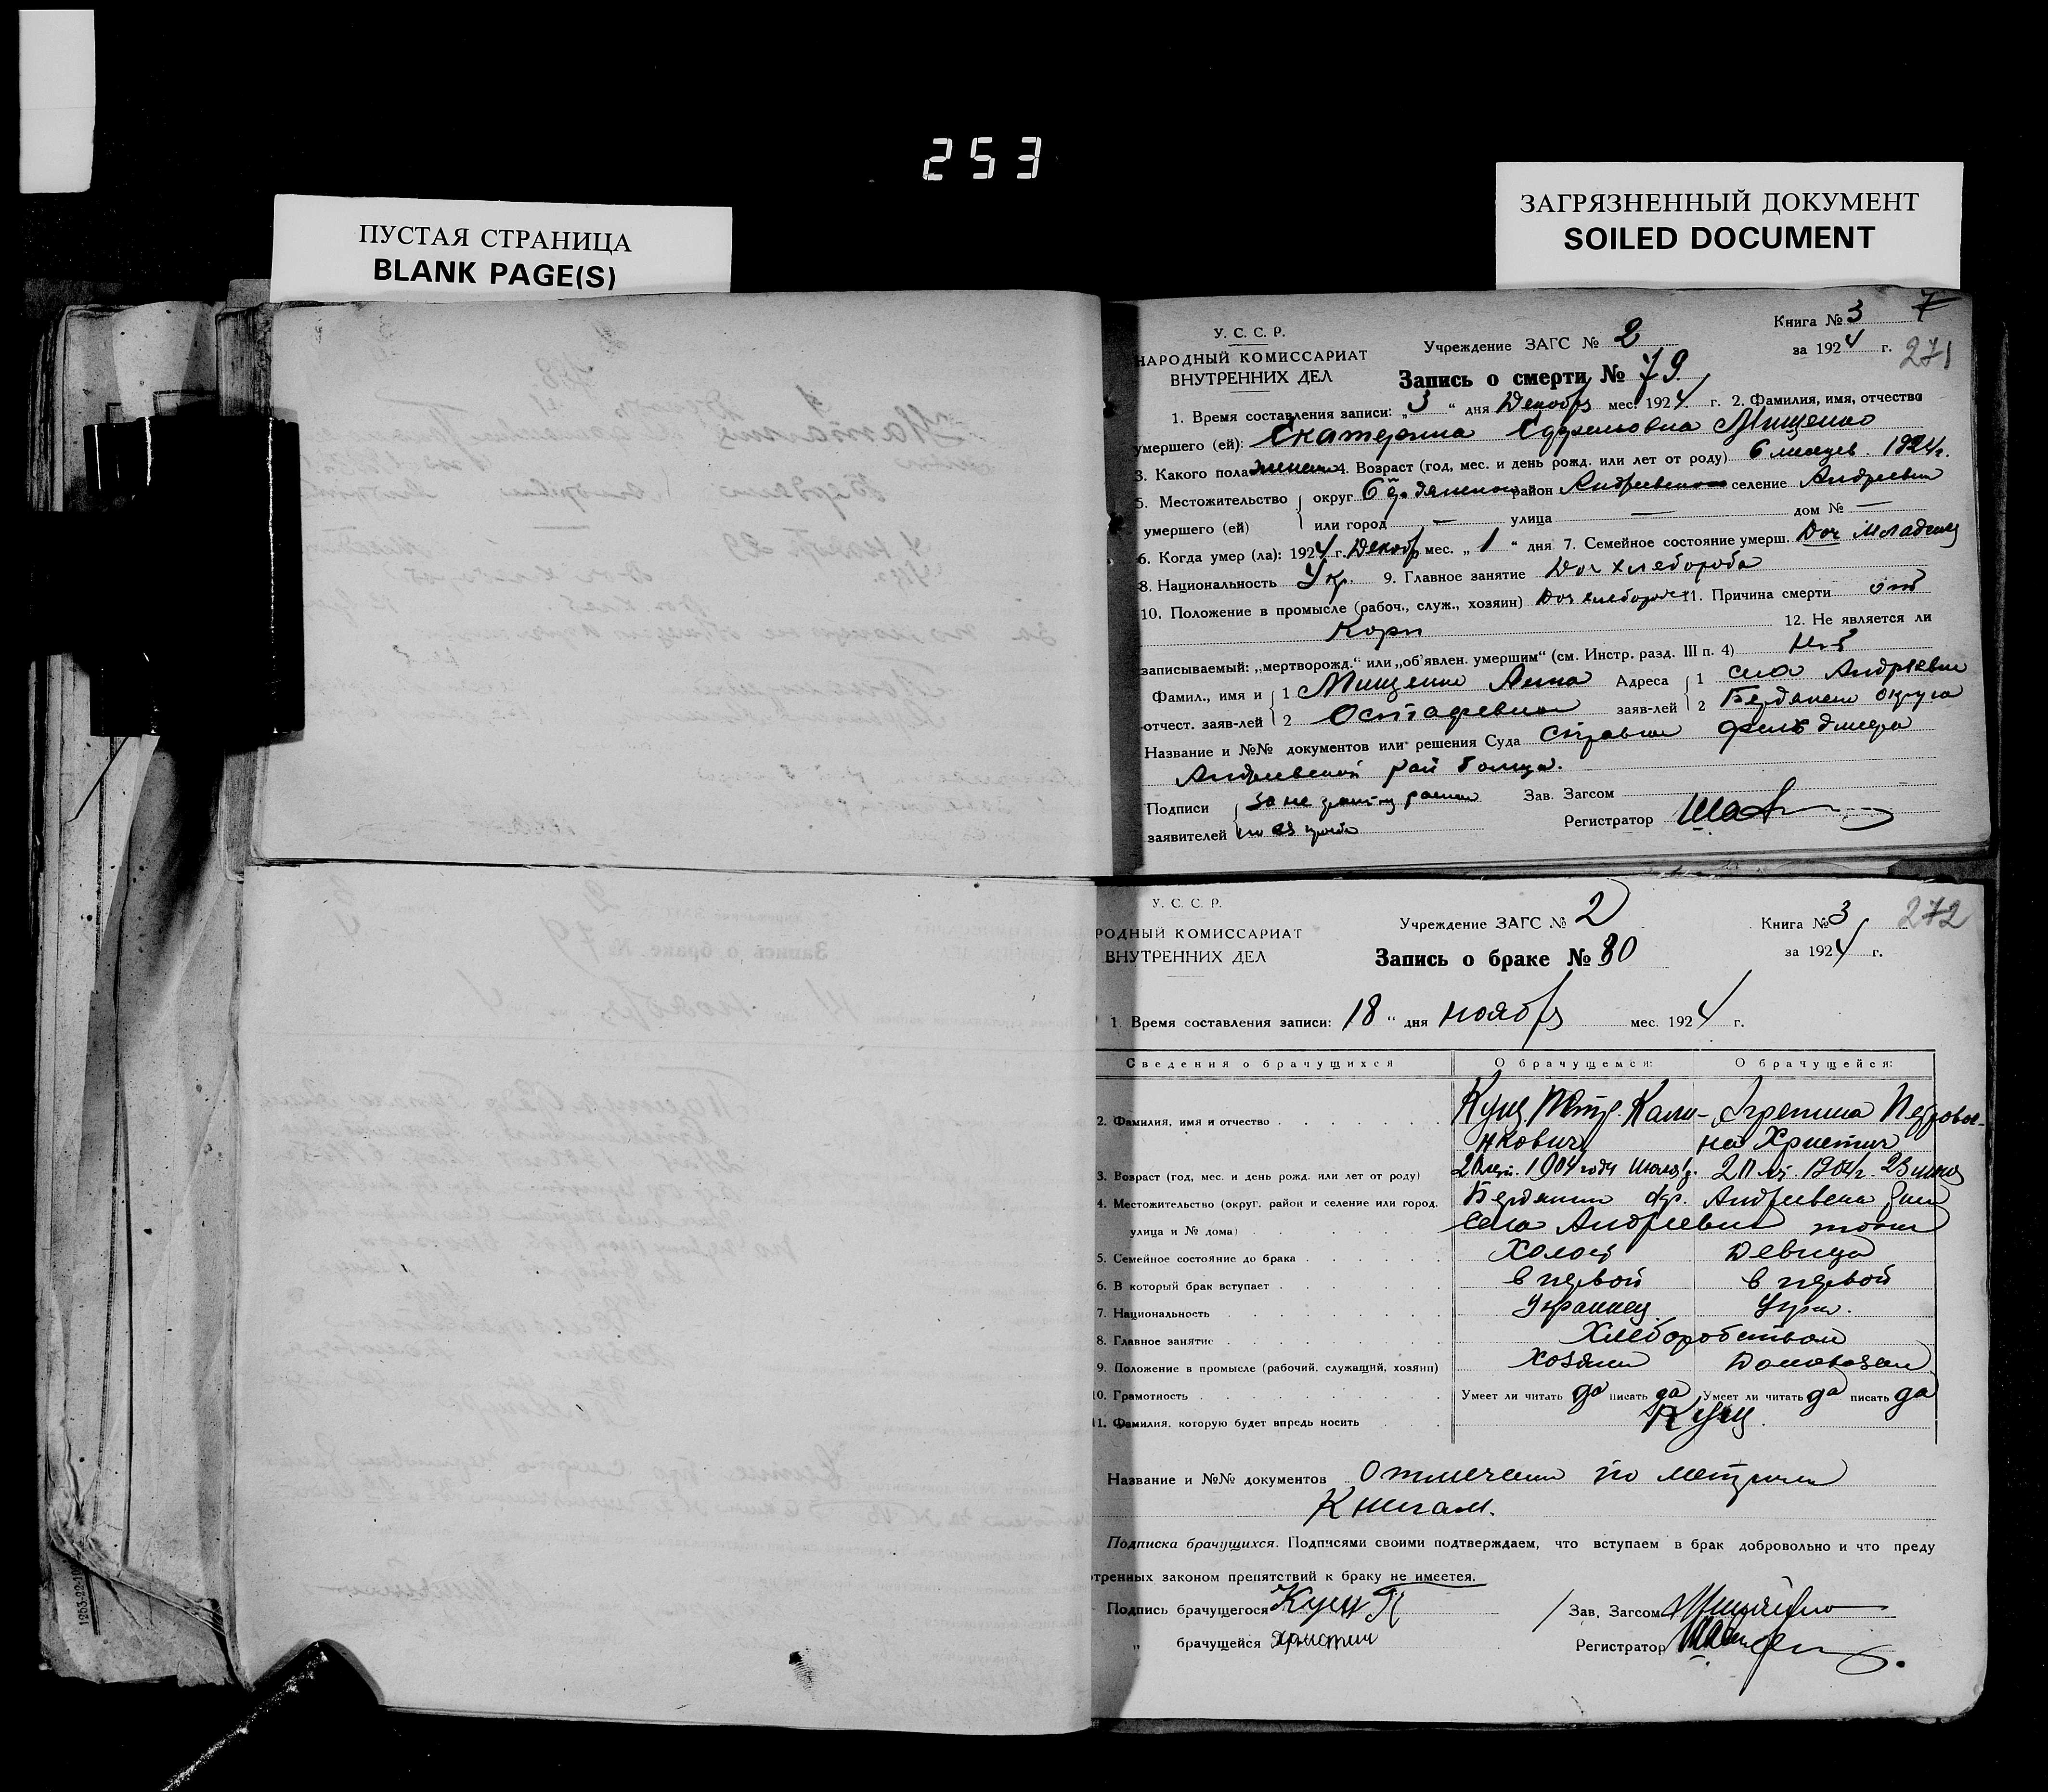 253
ПУСТАЯ СТРАНИЦА
BLANK PAGE(S)
ЗАГРЯЗНЕННЫЙ ДОКУМЕНТ
SOILED DOCUMENT
У. С. С. Р.
НАРОДНЫЙ КОМИССАРИАТ
ВНУТРЕННИХ ДЕЛ
Учреждение ЗАГС № 2
Книга № 3 7
за 1924 г. 271
Запись о смерти № 79
1. Время составления записи: „3“ дня Декабр мес. 1924 г. 2. Фамилия, имя, отчество
умершего (ей): Екатерина Мищенко
3. Какого пола женск 4. Возраст (год, мес. и день рожд. или лет от роду) 6 месяцев. 1924г.
5. Местожительство округ район Андреевском селение Андреевки
умершего (ей) или город — улица — дом № —
6. Когда умер (ла): 1924 г. Декабр мес. „1“ дня 7. Семейное состояние умерш. Доч младенец
8. Национальность Укр. 9. Главное занятие Доч хлебороба
10. Положение в промысле (рабоч., служ., хозяин) Доч хлебороба 11. Причина смерти от
Кори 12. Не является ли
записываемый: „мертворожд.“ или „об'явлен. умершим“ (см. Инстр. разд. III п. 4) нет
Фамил., имя и 1 Мищенко Анна Адреса 1 села Андреевки
отчест. заяв-лей 2 Остафевна заяв-лей 2 Бердянск округа
Название и №№ документов или решения Суда справки фельдшера
Андреевской рай больца.
Подписи за не грамотну Зав. Загсом
заявителей по ея прозбе Регистратор
У. С. С. Р.
РОДНЫЙ КОМИССАРИАТ
ВНУТРЕННИХ ДЕЛ
Учреждение ЗАГС № 2
Книга № 3 272
за 1924 г.
Запись о браке № 80
1. Время составления записи: 18 “ дня ноябр мес. 1924 г.
Сведения о брачущихся О брачущемся: О брачущейся:
2. Фамилия, имя и отчество Куц Петр Кали- Агрепина Петров-
никович на Христич
3. Возраст (год, мес. и день рожд. или лет от роду) 20 лет. 1904 года 20 лет. 1904г. 23 июня
4. Местожительство (округ, район и селение или город, Бердянски окр. Андреевска
улица и № дома) села Андреевки тоже
5. Семейное состояние до брака Холост Девица
6. В который брак вступает в первой в первой
7. Национальность Украинец Укр.
8. Главное занятие Хлеборобством
9. Положение в промысле (рабочий, служащий, хозяин) Хозяин Домохозяй
10. Грамотность Умеет ли читать да писать да Умеет ли читать да писать да
11. Фамилия, которую будет впредь носить Куц.
Название и №№ документов Отмечено по метричн
Книгам.
Подписка брачущихся. Подписями своими подтверждаем, что вступаем в брак добровольно и что преду
отренных законом препятствий к браку не имеется.
Подпись брачущегося Куц П Зав. Загсом
„ брачущейся христич Регистратор
1263-22-10